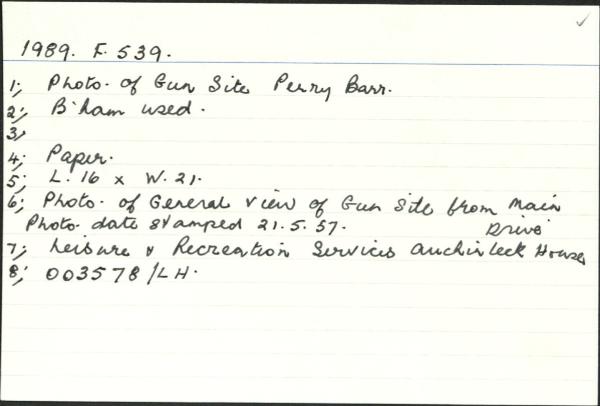 1989. F. 539.
1; Photo. of Gun Site Perry Barr.
2; B'ham used.
3;
4; Paper.
5; L. 16 x W. 21.
6; Photo. of General view of Gun Site from Main
Photo. date stamped 21.5.57. Drive
7; Leisure & Recreation Services Auchinleck House
8; 003578/LH.